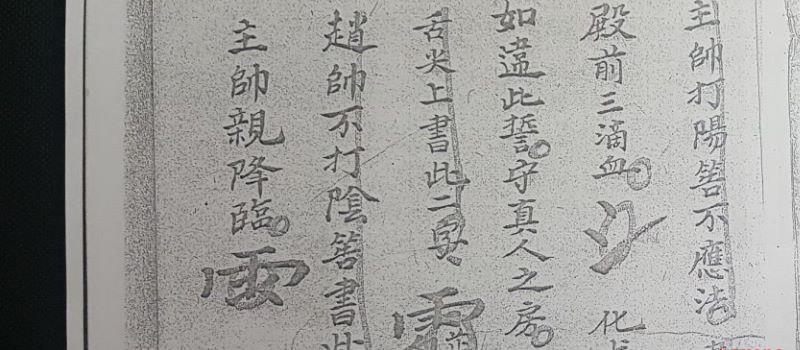 主帥打陽筶不應法
殿前三滴血。化
如違此誓。守真人之房。
舌尖上書此二字
趙帥不打陰筶書此
主帥親降臨。